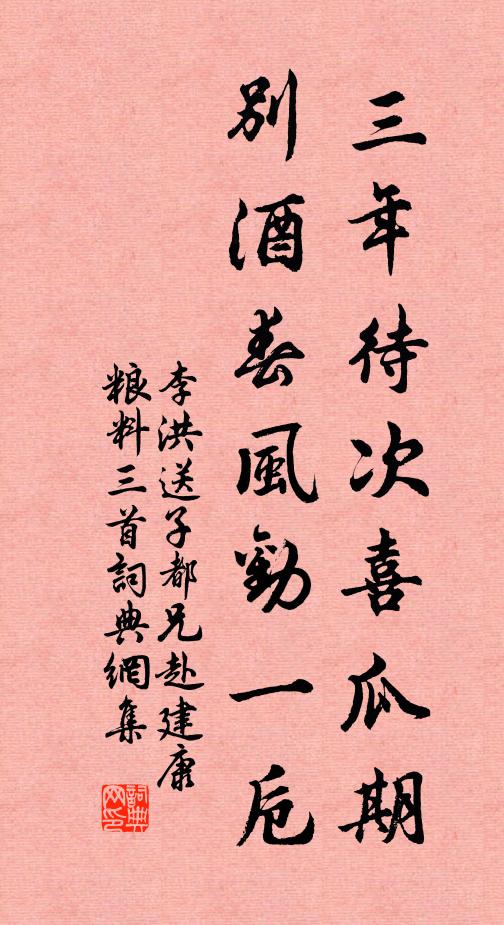 三年待次喜瓜期
別酒春風勸一卮
李洪送子都兄赴建康
粮料三首詞典網集
詞典網印